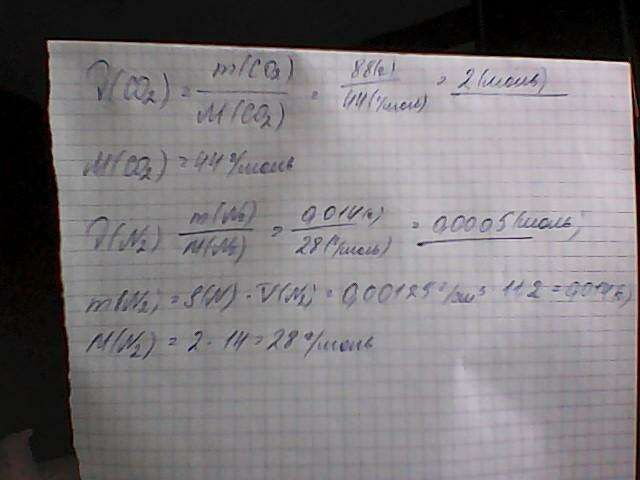 ν(CO₂) = m(CO₂) / M(CO₂) = 88(г) / 44(г/моль) = 2 (моль)
M(CO₂) = 44 г/моль
ν(N₂) m(N₂) / M(N₂) = 0,014(г) / 28(г/моль) = 0,0005 (моль)
m(N₂) = ρ(N) · V(N₂) = 0,00125 г/см³ · 11,2 = 0,014(г)
M(N₂) = 2 · 14 = 28 г/моль